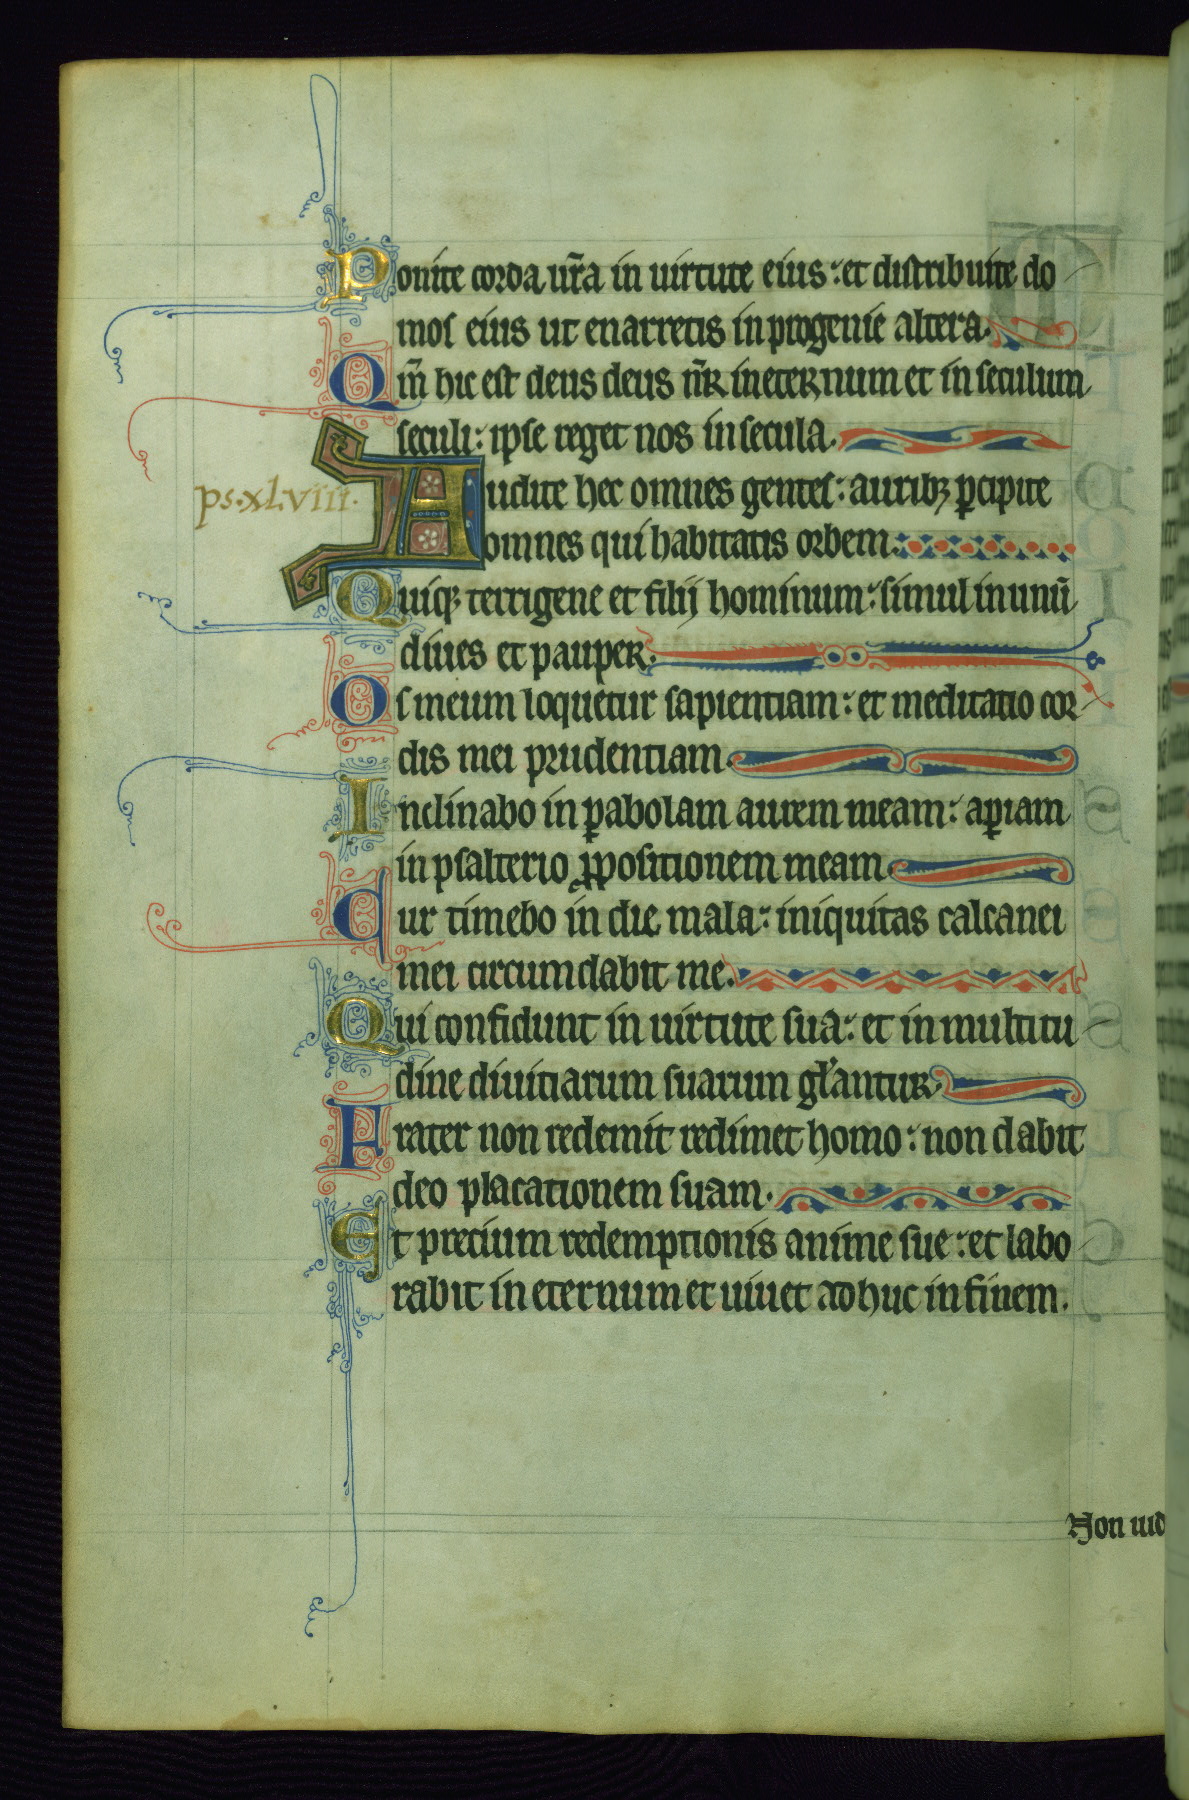 Ponite corda ur̄a in uirtute eius: et distribuite do
mos eius ut enarretis in progenie altera.
Qm̄ hic est deus deus nr̄ in eternum et in seculum
seculi: ipse reget nos in secula.
ps. xlviii.
Audite hec omnes gentes: auribꝫ ꝑcipite
omnes qui habitatis orbem.
Quiqꝫ terrigene et filij hominum: simul in unū
diues et pauper.
Os meum loquetur sapientiam: et meditatio cor
dis mei prudentiam.
Inclinabo in ꝑabolam aurem meam: aꝑiam
in psalterio ꝓpositionem meam.
Cur timebo in die mala: iniquitas calcanei
mei circumdabit me.
Qui confidunt in uirtute sua: et in multitu
dine diuitiarum suarum gl'antur.
Frater non redemit redimet homo: non dabit
deo placationem suam.
Et precium redemptionis anime sue: et labo
rabit in eternum et uiuet adhuc in finem.
Non uid